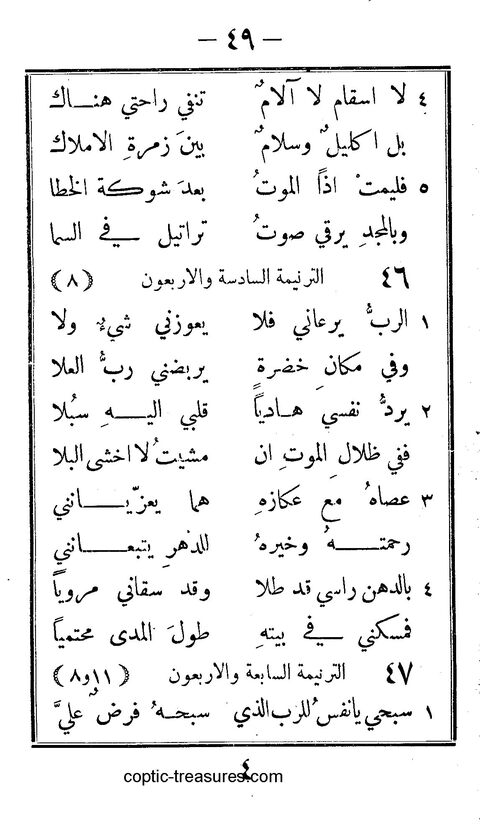 — ٤٩ —
٤ لا اسقام لا آلامٌ تنفي راحتي هناك
بل اكليلٌ وسلامٌ بينَ زمرةِ الاملاك
٥ فليمت اذاً الموتُ بعدَ شوكة الخطا
وبالمجدِ يرقي صوتُ تراتيل في السما
٤٦ الترنيمة السادسة والاربعون (٨)
١ الربُّ يرعاني فلا يعوزني شيءٌ ولا
وفي مكانِ خضرةٍ يربضني ربُّ العلا
٢ يردُّ نفسي هادياً قلبي اليهِ سبُلا
ففي ظلال الموتِ ان مشيتُ لا اخشى البلا
٣ عصاهُ مع عكازهِ هما يعزّيانني
رحمتهُ وخيرهُ للدهرِ يتبعانني
٤ بالدهن راسي قد طلا وقد سقاني مروياً
فمسكني في بيتهِ طولَ المدى محتمياً
٤٧ الترنيمة السابعة والاربعون (١١و٨)
١ سبحي يانفسُ للرب الذي سبحهُ فرضٌ عليَّ
٤
coptic-treasures.com